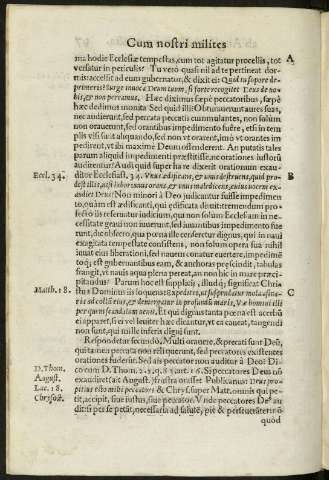 Cum nostri milites
ma hodie Ecclesiæ tempestas, cum tot agitatur procellis, tot
versatur in periculis? Tu verò quasi nil ad te pertineat dor-
mis: accessit ad eum gubernator, & dixit ei: Quid tu sopore de-
primeris? surge inuoca Deum tuum, si forte recogitet Deus de no-
bis, & non pereamus. Hæc diximus sæpè peccatoribus, sæpè
hæc dedimus monita Sed quid illi? Obturauerunt aures suas,
nec audierunt, sed peccata peccatis cummulantes, non solum
non orauerunt, sed orantibus impedimento fuere, etsi in tem
plis visi sunt aliquando, sed non vt orarent, imò vt orantes im
pedirent, vt ibi maxime Deum ostenderent. An putatis tales
parum aliquid impedimenti præstitisse, ne orationes iustorũ
audirentur? Audi quid super hac re dixerit orationum exau-
ditor Ecclesiast. 34. Vnus ædificans, & vnus destruens, quid pro-
dest illis, nisi labor? vnus orans, & vnus maledicens, cuius vocem ex-
audiet Deus? Non minori à Deo judicantur fuisse impedimen
to, quàm est ædificanti, qui ædificata diruit: remorandum pro
fectò iis reseruatur iudicium, qui non solum Ecclesiam in ne-
cessitate graui non iuuerunt, sed iuuantibus impedimento fue
runt, duobsecro, qua poena ille censeretur dignus, qui in naui
exagitata tempestate consistens, non solum opera sua nihil
iouat eius liberationi, sed nautis conatur euertere, impedimẽ
toq́; est gubernantibus eam, & anchoras præscindit, tabulas
frangit, vt nauis aqua plena pereat, an non hic in mare præci-
pitandus? Parum hoc est supplicij, illudq́; significat Chris
tus Dominus iis loquens: Expedit ei, vt suspendatur mola asina-
ria ad collũ eius, & demergatur in profundũ maris, Væ homini illi
per quem scandalum venit, Et qui dignus tanta poena est acerbè
ei apparet, si ei vel leuiter hæc dicantur, vt ea caueat, tangendi
non sunt, qui mille inferis digni sunt.
Respondetur secundò, Multi orauere, & precati sunt Deũ,
quitamen peccata non reliquerunt, sed peccatores existentes
orationes fudêre. Sed ais peccator non auditur à Deo? Di-
co cum D. Thom. 2. 2. q. 83. art. 16. Si peccatores Deus nõ
exaudiret (ait August.) frustra orasset Publicanus: Deus pro-
pitius esto mihi peccatori: & Chrys. super Matt. omnis qui pe-
tit, accipit, siue iustus, siue peccator. Vnde peccatores Deꝰ au
dit si pro se petãt, necessaria ad salutẽ, piè & perseueranter: nõ
quòd
A
Eccl. 34.
B
Matth. 18.
C
D. Thom.
August.
Luc. 18.
Chrysost.